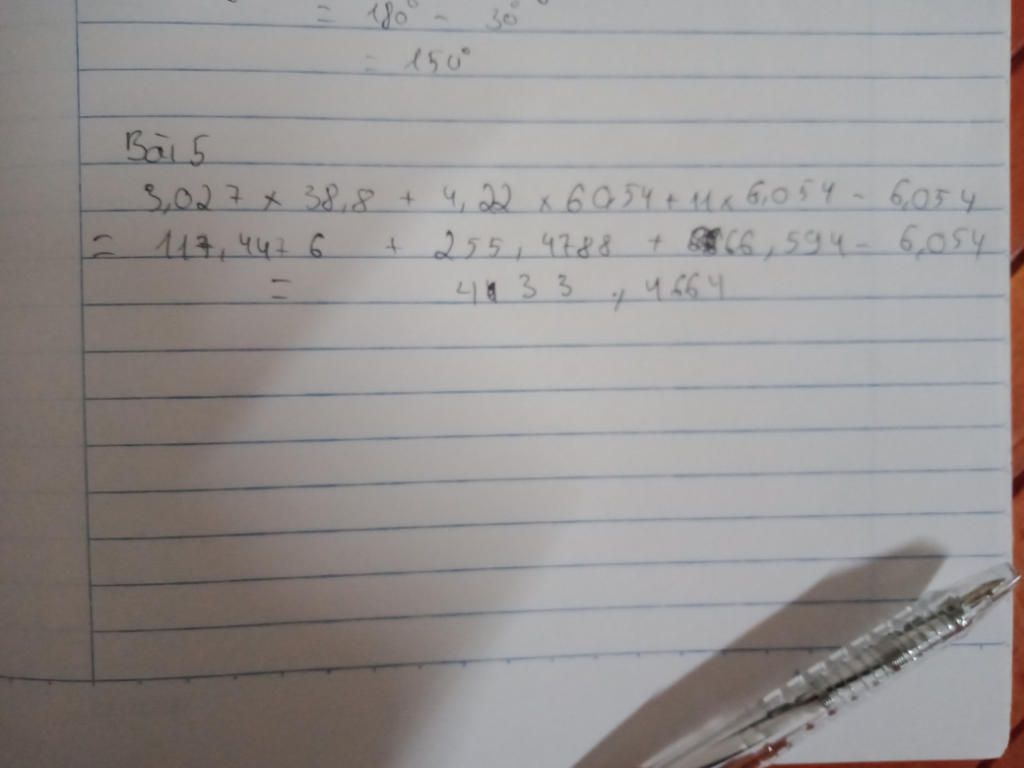 = 180° - 30°
= 150°
Bài 5
3,027 × 38,8 + 4,22 × 60,54 + 11 × 6,054 - 6,054
= 117,4476 + 255,4788 + 66,594 - 6,054
= 433,4664